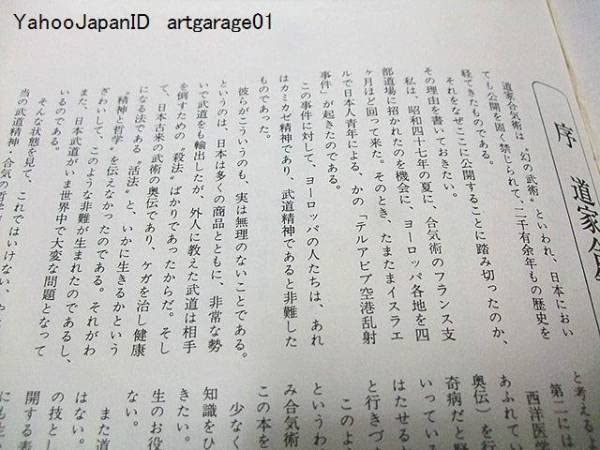 YahooJapanID　artgarage01
序　道家合気
道家合気術は〝幻の武術〟といわれ、日本におい
ても公開を固く禁じられて、二千有余年もの歴史を
経てきたものである。
それをなぜここに公開することに踏み切ったのか、
その理由を書いておきたい。
私は、昭和四十七年の夏に、合気術のフランス支
部道場に招かれたのを機会に、ヨーロッパ各地を四
ヶ月ほど回って来た。そのとき、たまたまイスラエ
ルで日本人青年による、かの「テルアビブ空港乱射
事件」が起きたのである。
この事件に対して、ヨーロッパの人たちは、あれ
はカミカゼ精神であり、武道精神であると非難した
ものであった。
彼らがこういうのも、実は無理のないことである。
というのは、日本は多くの商品とともに、非常な勢
いで武道をも輸出したが、外人に教えた武道は相手
を倒すための〝殺法〟ばかりであったからだ。そし
て、日本古来の武術の奥伝であり、ケガを治し健康
になる法である〝活法〟と、いかに生きるかという
〝精神と哲学〟を伝えなかったのである。それがわ
ざわいして、このような非難が生まれたのであるし、
また、日本武道がいま世界中で大変な問題となって
いるのである。
そんな状態を見て、これではいけない、
当の武道精神、合気の哲学
と考えるよ
第二には
西洋医学
あふれてい
奥伝）を行
奇病だと堅
いっている
はたせる
と行きづ
このよ
というわ
み合気術
この本を
少なく
知識をひ
きたい。
生のお役
ない。
また道
はない。
の技と
開する素
にも